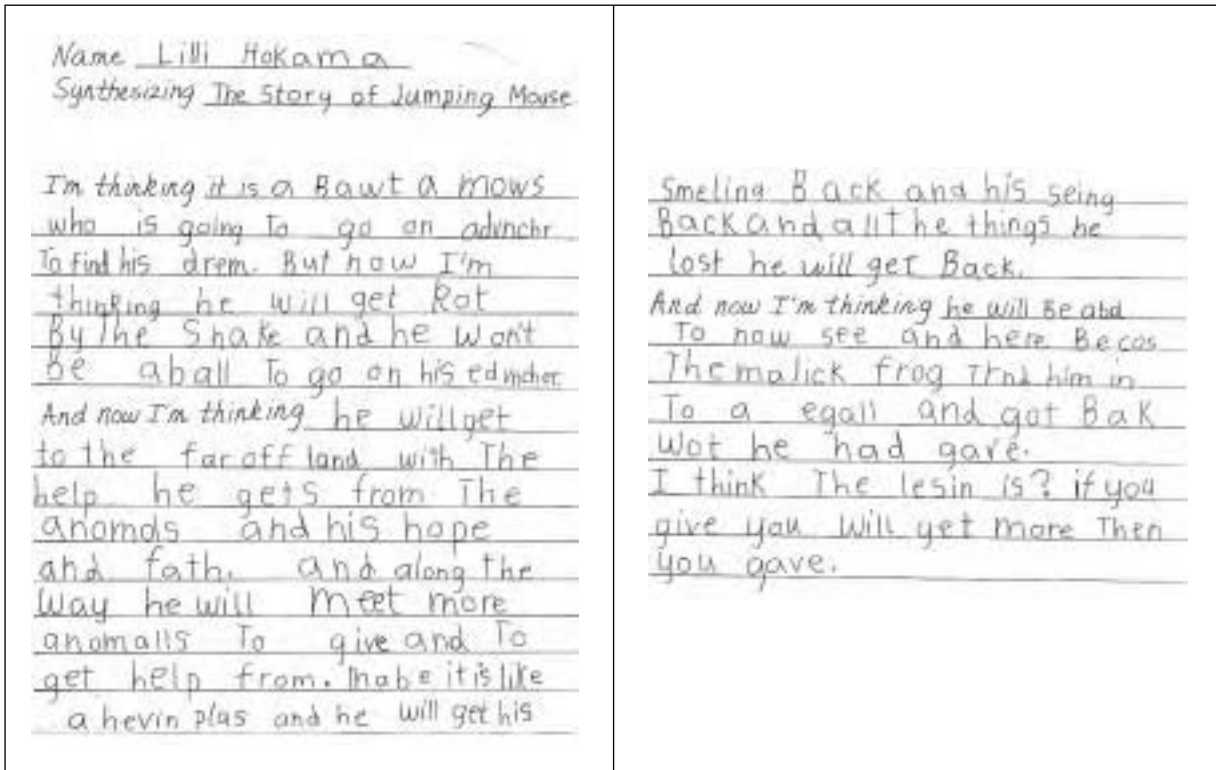 Name Lilli Hokama
Synthesizing The Story of Jumping Mouse
I'm thinking it is a Bawt a mows
who is going To go on advnchr
To find his drem. But now I'm
thinking he will get Rot
By The Snake and he won't
Be aball To go on his edvncher.
And now I'm thinking he will get
to the far off land with The
help he gets from The
anomols and his hope
and fath. and along the
way he will meet more
anomalls To give and To
get help from. mabe it is like
a hevin plas and he will get his
Smeling Back and his seing
Back and all The things he
lost he will get Back.
And now I'm thinking he will Be abd
To now see and here Becos
The malick frog Trnd him in
To a egall and got Bak
wot he had gave.
I think The lesin is? if you
give you will get more Then
you gave.